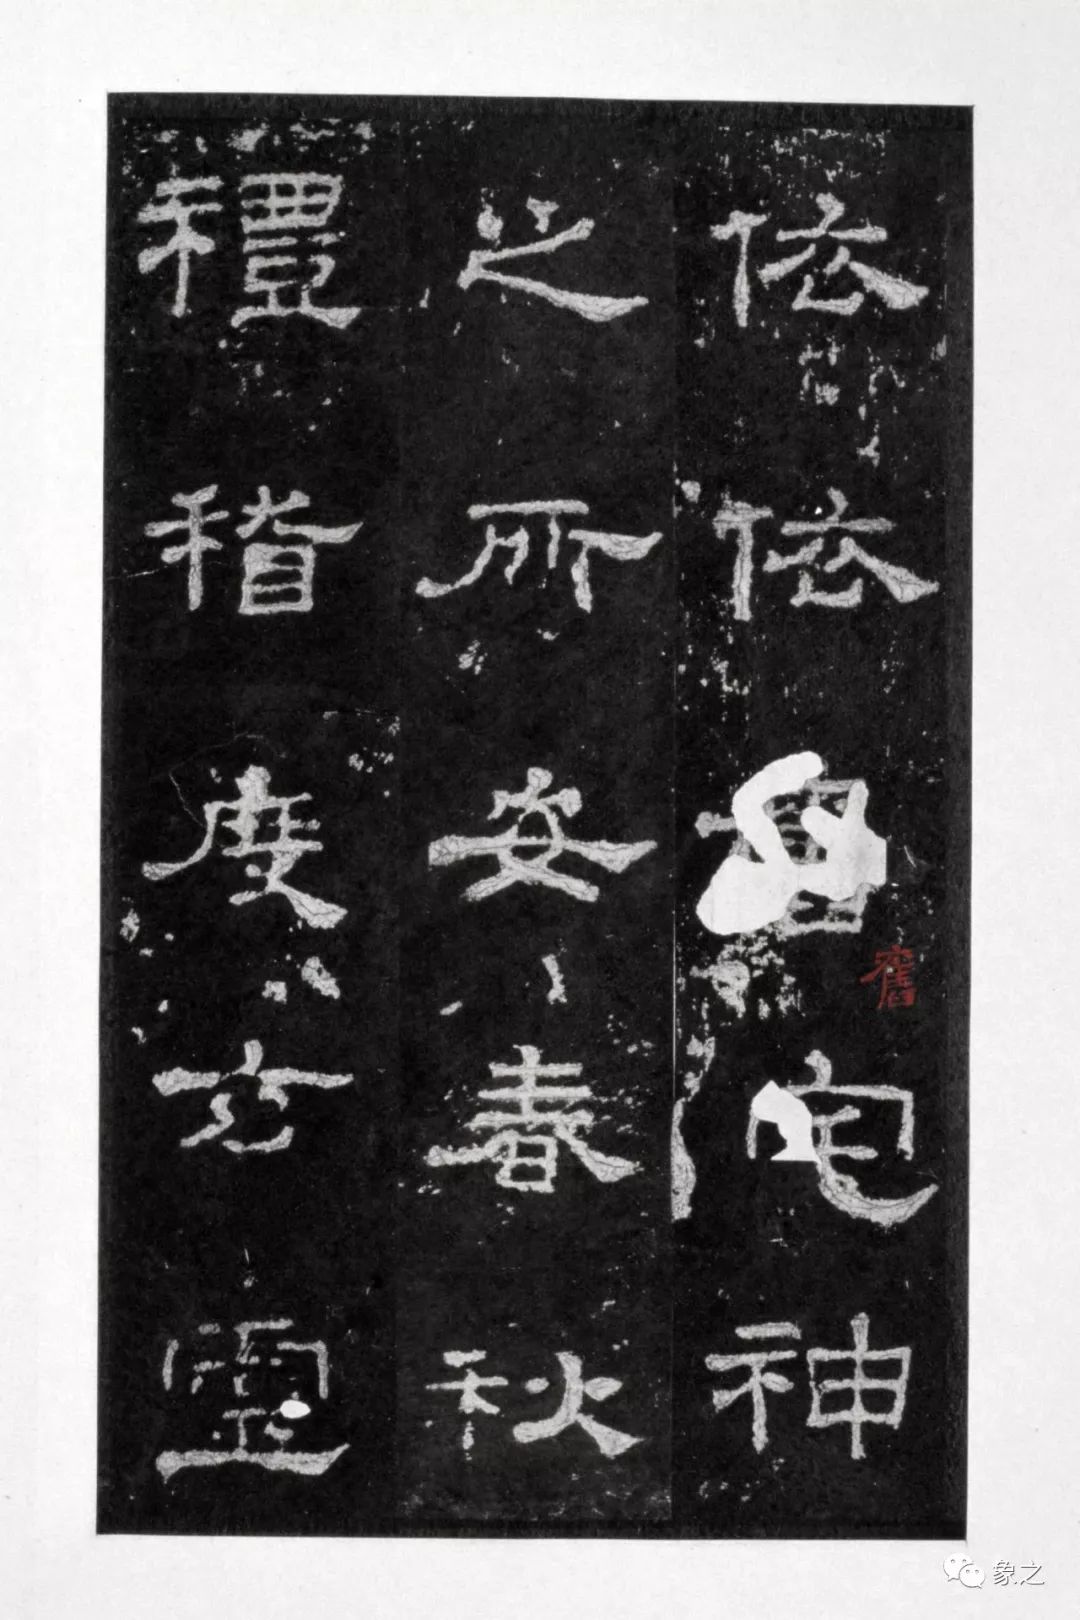 依依舊宅神
之所安春秋
禮稽度玄靈
象之